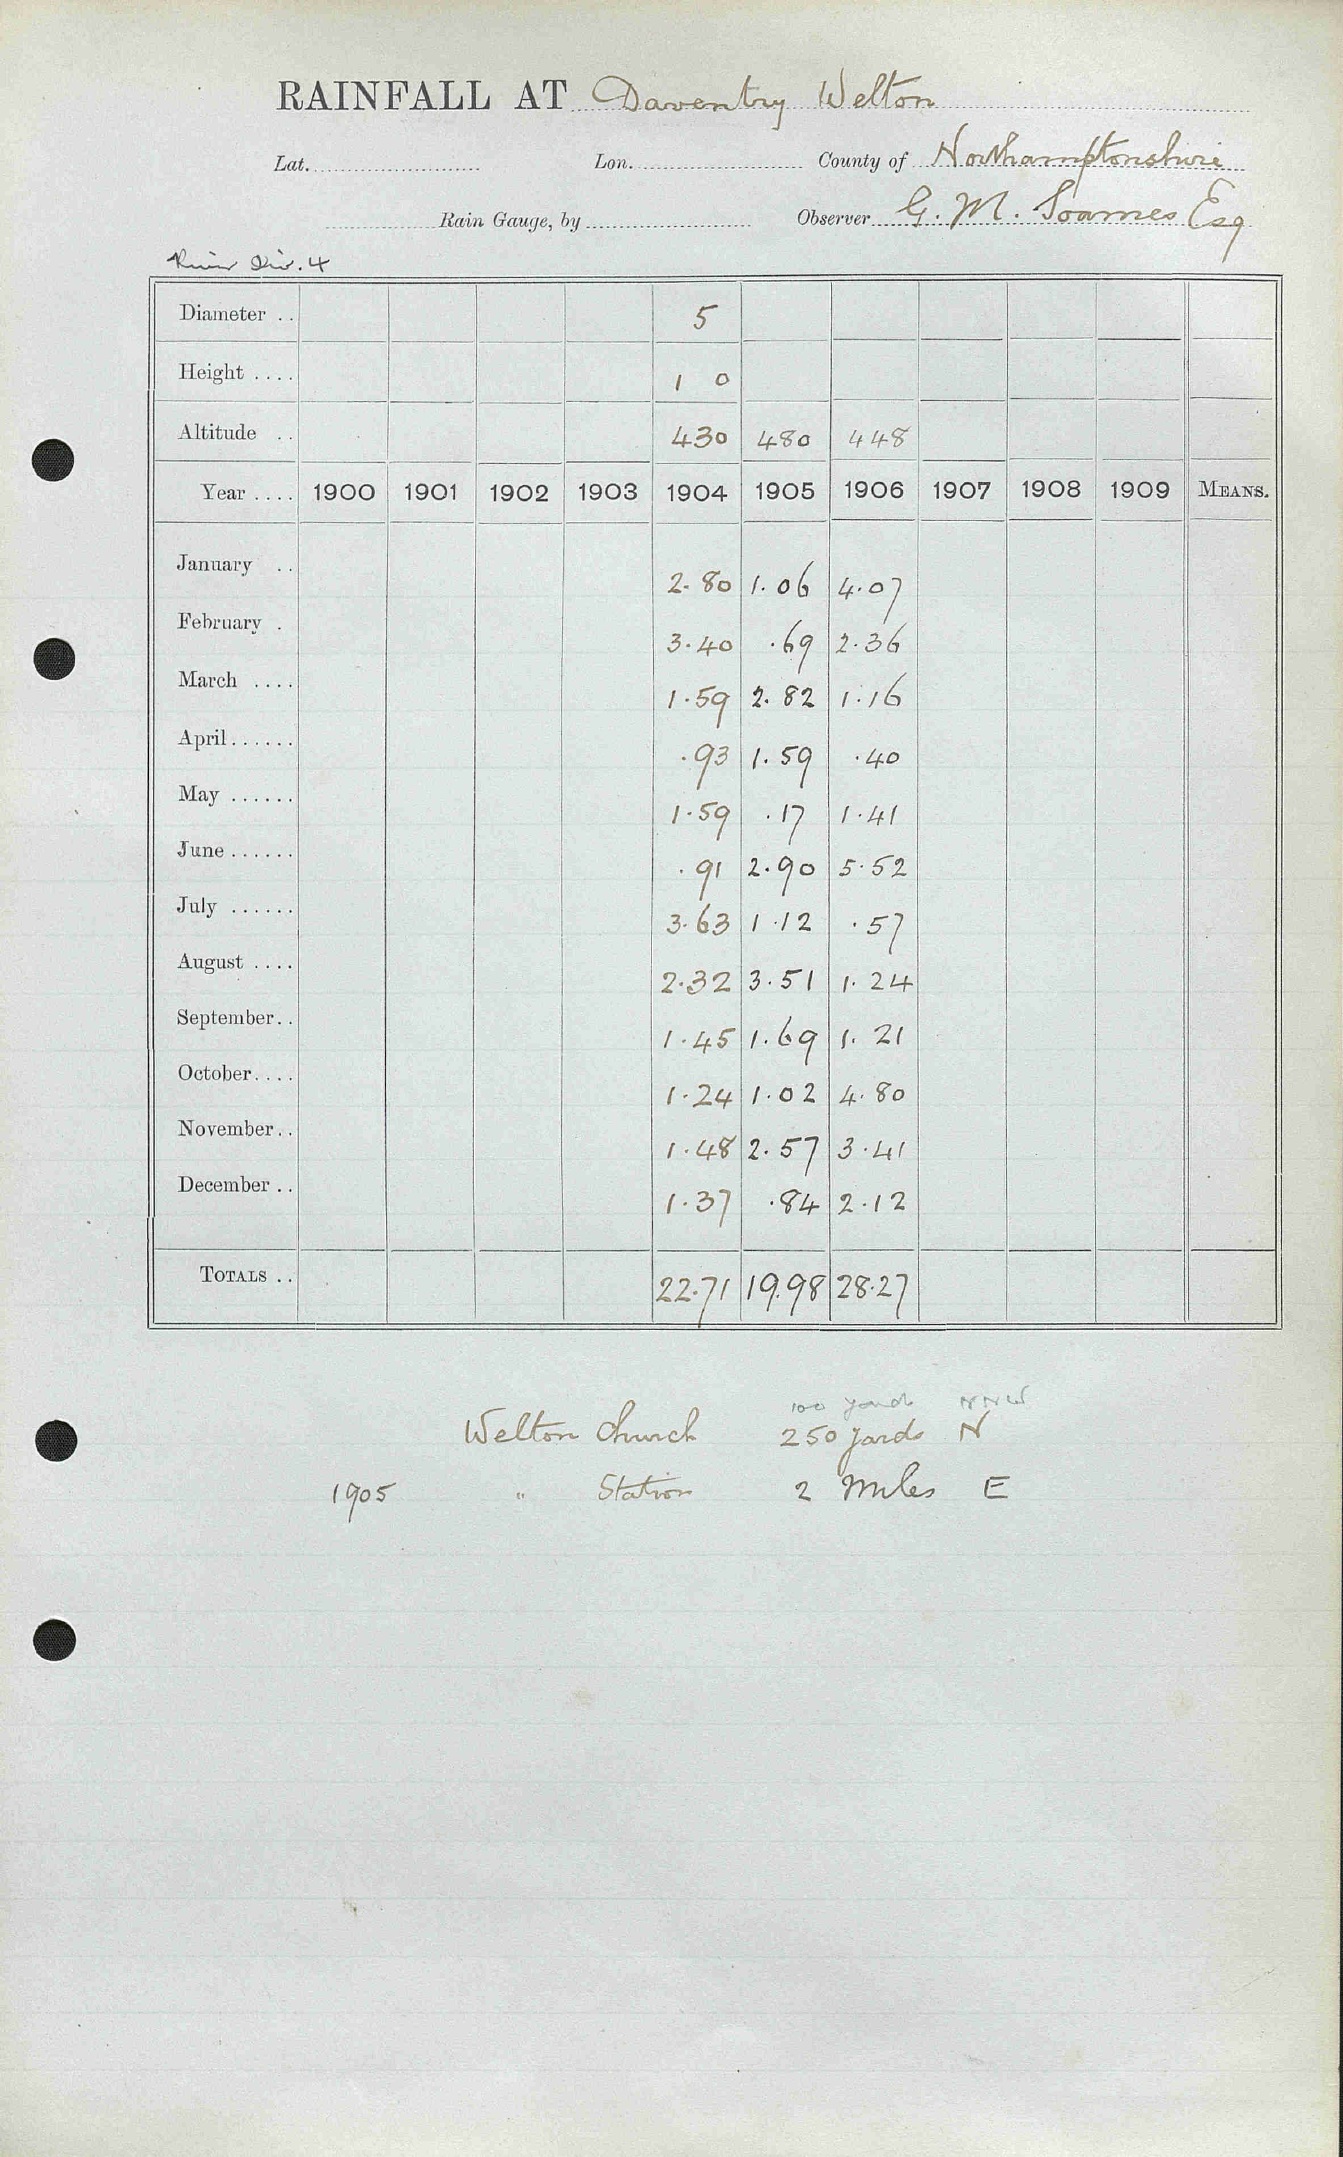 RAINFALL AT Daventry Welton
Lat. Lon. County of Northamptonshire
Rain Gauge, by Observer G. M. Soames Esq
River Div. 4
Diameter .. 5
Height .... 1 0
Altitude .. 430 480 448
Year .... 1900 1901 1902 1903 1904 1905 1906 1907 1908 1909 MEANS.
January .. 2.80 1.06 4.07
February . 3.40 .69 2.36
March .... 1.59 2.82 1.16
April ...... .93 1.59 .40
May ...... 1.59 .17 1.41
June ...... .91 2.90 5.52
July ...... 3.63 1.12 .57
August .... 2.32 3.51 1.24
September.. 1.45 1.69 1.21
October.... 1.24 1.02 4.80
November.. 1.48 2.57 3.41
December .. 1.37 .84 2.12
TOTALS .. 22.71 19.98 28.27
100 yards NNW
Welton Church 250 yards N
1905 " Station 2 Miles E